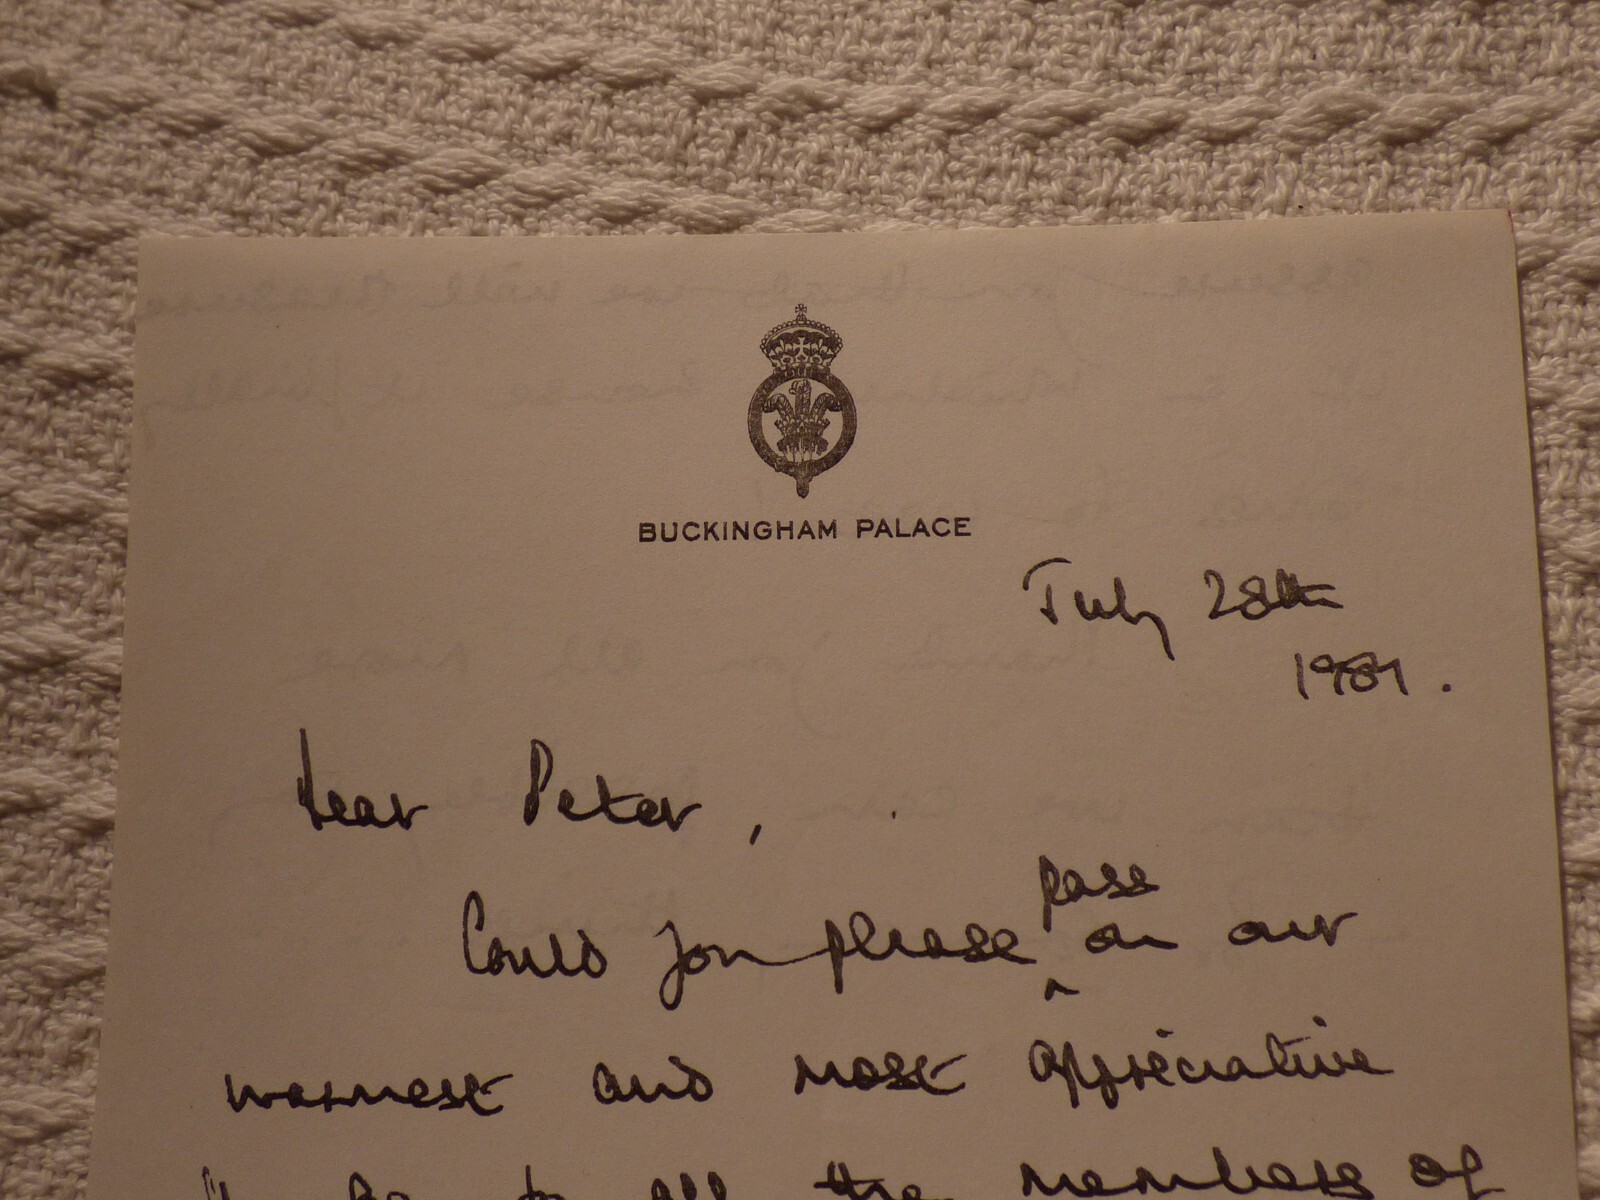 BUCKINGHAM PALACE
July 28th
1981.
Dear Peter,
Could you please pass on our
warmest and most appreciative
to all the members of